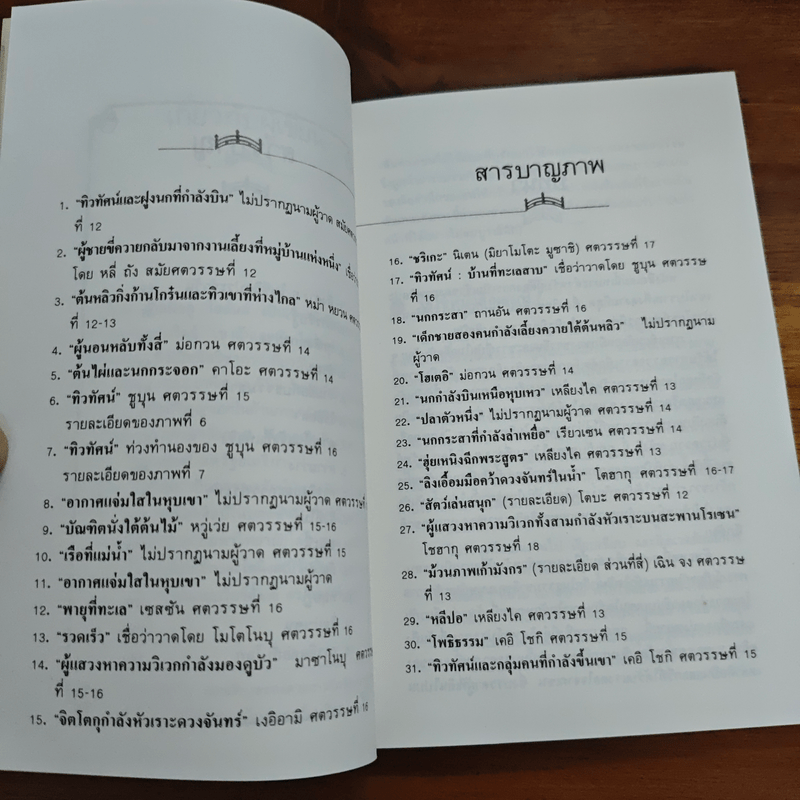 1. "ทิวทัศน์และฝูงนกที่กำลังบิน" ไม่ปรากฏนามผู้วาด สมัยศตวรรษ
ที่ 12
2. "ผู้ชายขี่ควายกลับมาจากงานเลี้ยงที่หมู่บ้านแห่งหนึ่ง"
โดย หลี่ ถัง สมัยศตวรรษที่ 12
3. "ต้นหลิวกิ่งก้านโกร๋นและทิวเขาที่ห่างไกล" หม่า หยวน
ที่ 12-13
4. "ผู้นอนหลับทั้งสี่" ม่อกวน ศตวรรษที่ 14
5. "ต้นไผ่และนกกระจอก" คาโอะ ศตวรรษที่ 14
6. "ทิวทัศน์" ชูบุน ศตวรรษที่ 15
รายละเอียดของภาพที่ 6
7. "ทิวทัศน์" ท่วงทำนองของ ชูบุน ศตวรรษที่ 16
รายละเอียดของภาพที่ 7
8. "อากาศแจ่มใสในหุบเขา" ไม่ปรากฏนามผู้วาด ศตวรรษที่
9. "บัณฑิตนั่งใต้ต้นไม้" หวู่เว่ย ศตวรรษที่ 15-16
10. "เรือที่แม่น้ำ" ไม่ปรากฏนามผู้วาด ศตวรรษที่ 15
11. "อากาศแจ่มใสในหุบเขา" ไม่ปรากฏนามผู้วาด
12. "พายุที่ทะเล" เซสซัน ศตวรรษที่ 16
13. "รวดเร็ว" เชื่อว่าวาดโดย โมโตโนบุ ศตวรรษที่ 16
14. "ผู้แสวงหาความวิเวกกำลังมองดูบัว" มาซาโนบุ
ที่ 15-16
15. "จิตโตกุกำลังหัวเราะดวงจันทร์" เงอิอามิ ศตวรรษที่ 16
สารบาญภาพ
16. "ชริเกะ" นิเตน (มิยาโมโตะ มูซาชิ) ศตวรรษที่ 17
17. "ทิวทัศน์ : บ้านที่ทะเลสาบ" เชื่อว่าวาดโดย ชูบุน ศตวรรษ
ที่ 16
18. "นกกระสา" ถานอัน ศตวรรษที่ 16
19. "เด็กชายสองคนกำลังเลี้ยงควายใต้ต้นหลิว" ไม่ปรากฏนาม
ผู้วาด
20. "โฮเตอิ" ม่อกวน ศตวรรษที่ 14
21. "นกกำลังบินเหนือหุบเหว" เหลียงไค ศตวรรษที่ 13
22. "ปลาตัวหนึ่ง" ไม่ปรากฏนามผู้วาด ศตวรรษที่ 14
23. "นกกระสาที่กำลังล่าเหยื่อ" เรียวเซน ศตวรรษที่ 14
24. "ฮุ่ยเหนิงฉีกพระสูตร" เหลียงไค ศตวรรษที่ 13
25. "ลิงเอื้อมมือคว้าดวงจันทร์ในน้ำ" โตฮากุ ศตวรรษที่ 16-17
26. "สัตว์เล่นสนุก" (รายละเอียด) โตบะ ศตวรรษที่ 12
27. "ผู้แสวงหาความวิเวกทั้งสามกำลังหัวเราะบนสะพานโรเซน"
โชฮากุ ศตวรรษที่ 18
28. "ม้วนภาพเก้ามังกร" (รายละเอียด ส่วนที่สี่) เฉิน จง ศตวรรษ
ที่ 13
29. "หลีปอ" เหลียงไค ศตวรรษที่ 13
30. "โพธิธรรม" เคอิ โชกิ ศตวรรษที่ 15
31. "ทิวทัศน์และกลุ่มคนที่กำลังขึ้นเขา" เคอิ โชกิ ศตวรรษที่ 15